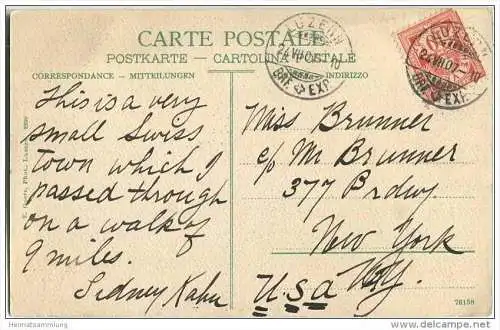 CARTE POSTALE
POSTKARTE – CARTOLINA POSTALE
CORRESPONDANCE – MITTEILUNGEN
INDIRIZZO
LUZERN
BRF. EXP.
LUZERN
24.VII.07
BRF. EXP.
This is a very
small Swiss
town which I
passed through
on a walk of
9 miles.
Sidney Kahn
Miss Brunner
c/o Mr Brunner
377 Brdwy.
New York
U.S.A.
76158